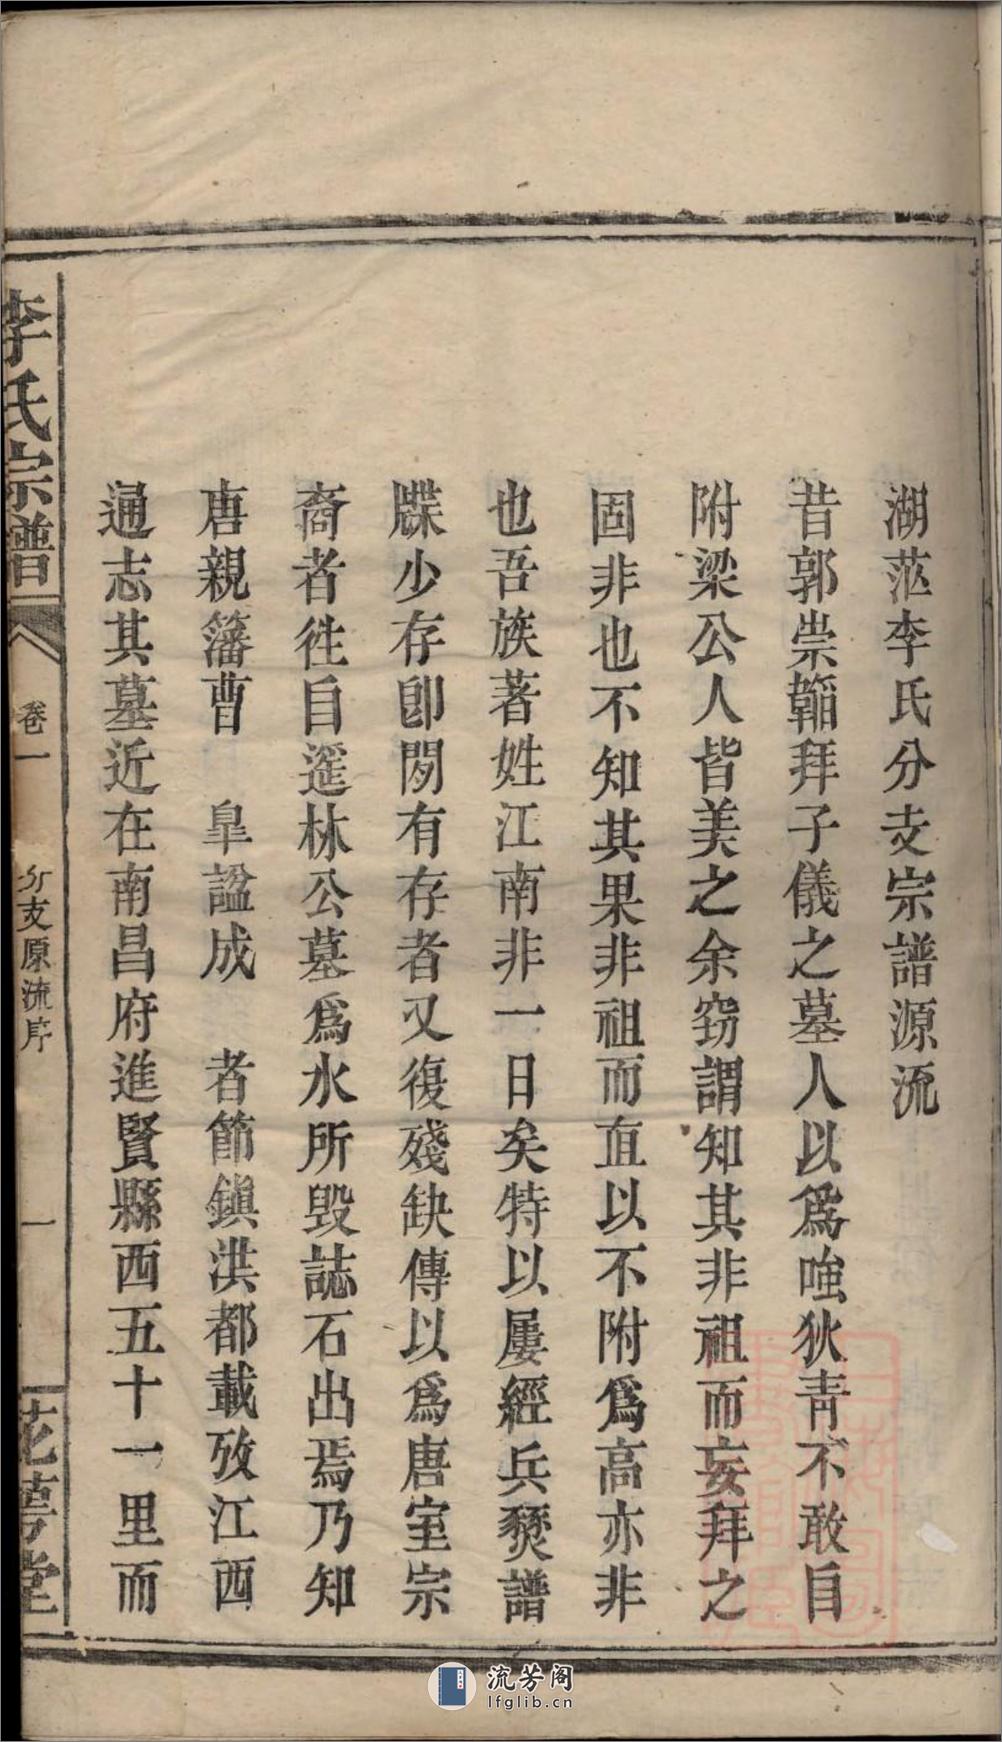 湖茫李氏分支宗譜源流
昔郭崇韜拜子儀之墓人以為嗤狄青不敢自
附梁公人皆美之余窃謂知其非祖而妄拜之
固非也不知其果非祖而直以不附為高亦非
也吾族著姓江南非一日矣特以屢經兵燹譜
牒少存即閒有存者又復殘缺傳以為唐室宗
裔者徃自遥林公墓為水所毀誌石出焉乃知
唐親藩曹 臯諡成 者節鎮洪都載攷江西
通志其墓近在南昌府進賢縣西五十一里而
李氏宗譜 卷一 分支原流序 一 花萼堂
流芳阁
lfglib.cn